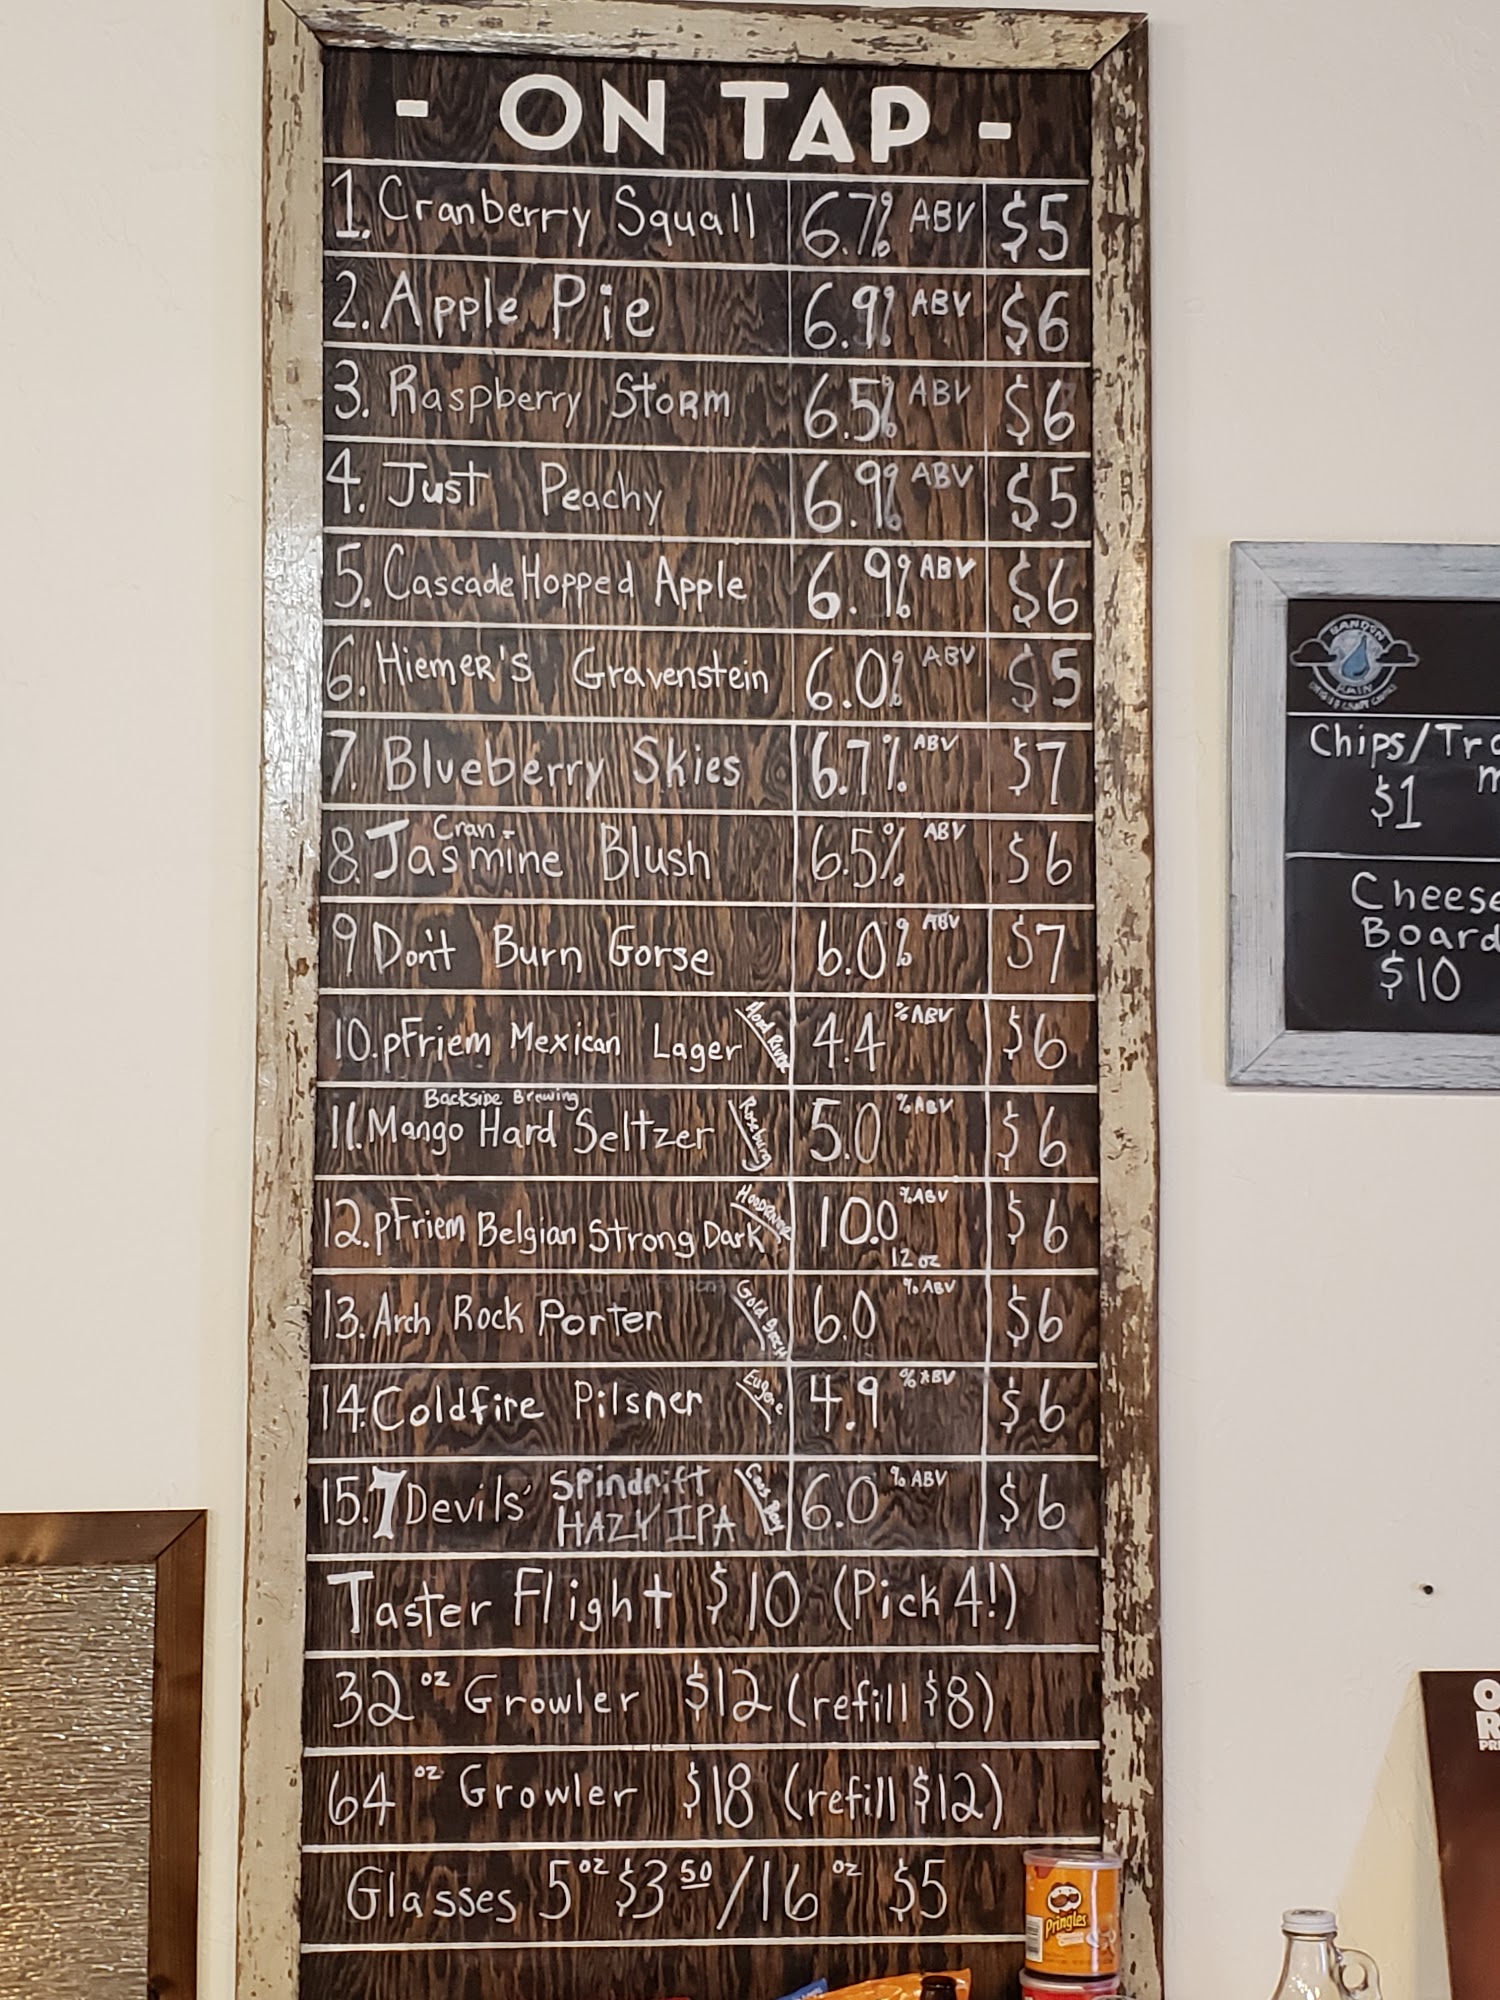 - ON TAP -
1. Cranberry Squall 6.7% ABV $5
2. Apple Pie 6.9% ABV $6
3. Raspberry Storm 6.5% ABV $6
4. Just Peachy 6.9% ABV $5
5. Cascade Hopped Apple 6.9% ABV $6
6. Hiemer's Gravenstein 6.0% ABV $5
7. Blueberry Skies 6.7% ABV $7
Cran-
8. Jasmine Blush 6.5% ABV $6
9 Don't Burn Gorse 6.0% ABV $7
10. pFriem Mexican Lager Hood River 4.4 % ABV $6
Backside Brewing
11. Mango Hard Seltzer Roseburg 5.0 % ABV $6
12. pFriem Belgian Strong Dark Hood River 10.0 % ABV 12 oz $6
13. Arch Rock Porter Gold Beach 6.0 % ABV $6
14. Coldfire Pilsner Eugene 4.9 % ABV $6
15. 7 Devils' Spindrift HAZY IPA Coos Bay 6.0 % ABV $6
Taster Flight $10 (Pick 4!)
32 oz Growler $12 (refill $8)
64 oz Growler $18 (refill $12)
Glasses 5 oz $3 50 / 16 oz $5
Pringles
BANDON
RAIN
Chips/
$1
Cheese
Board
$10